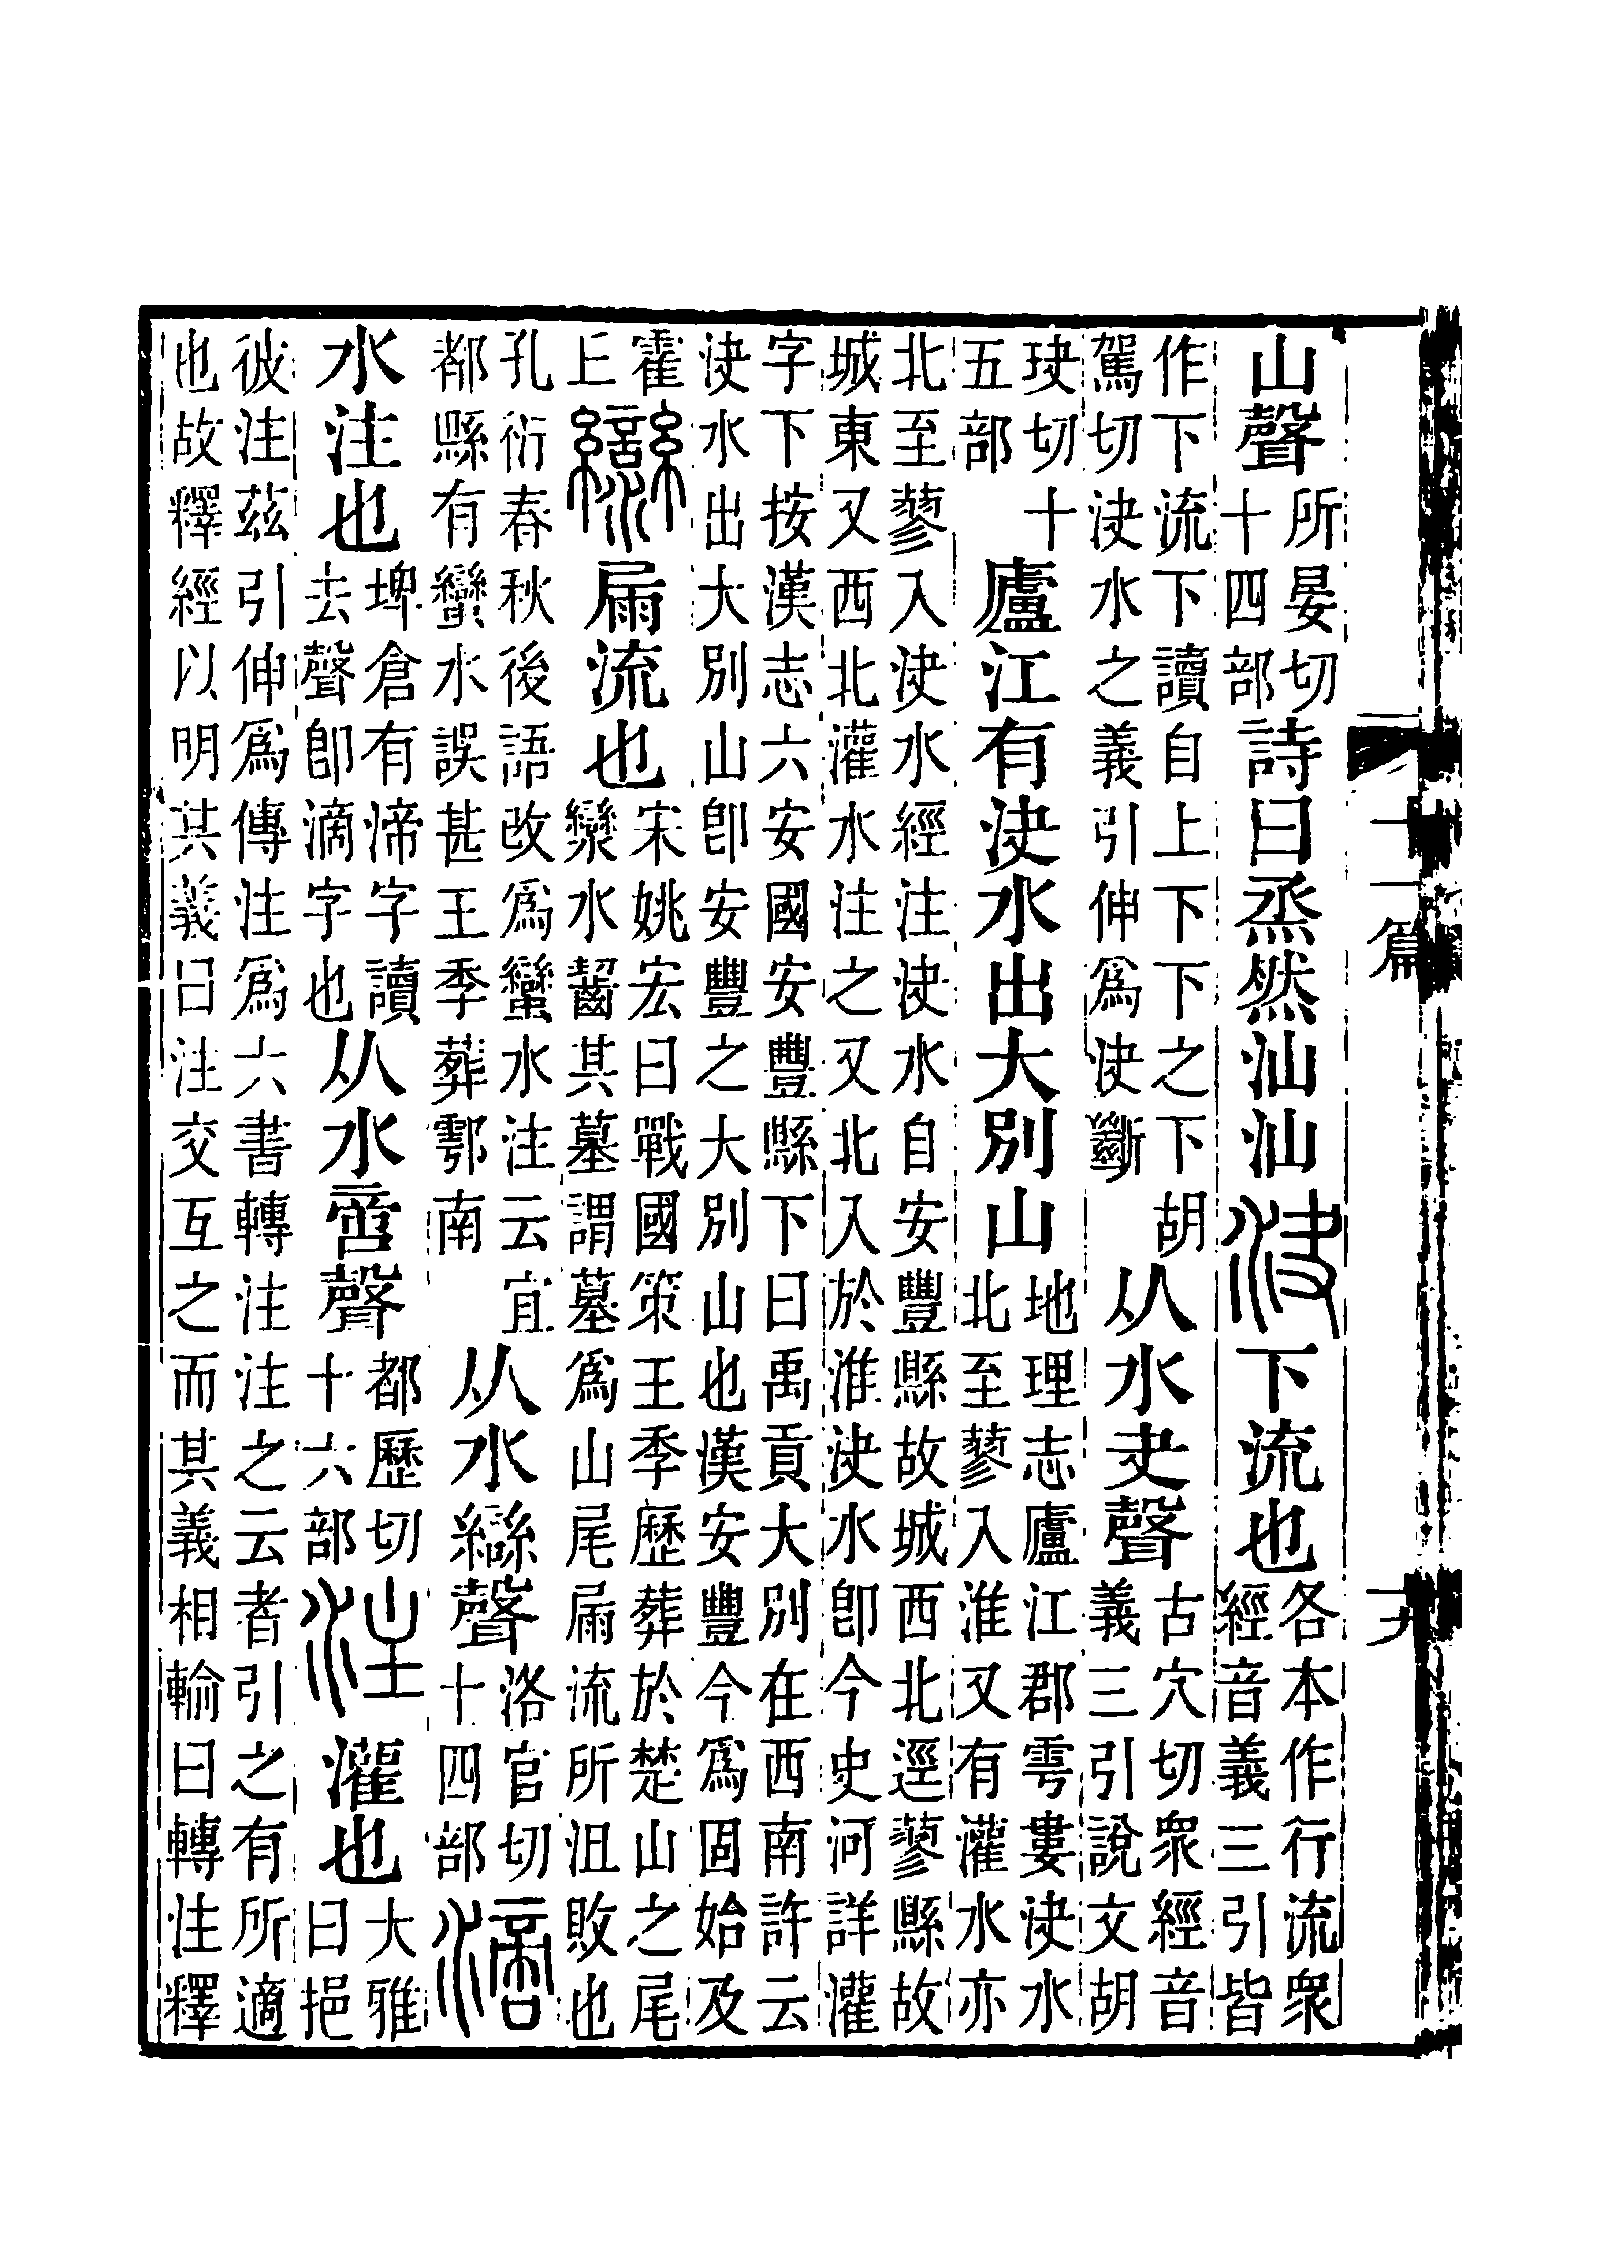 山聲所晏切十四部詩曰烝然汕汕決下流也各本作行流衆經音義三引皆
作下流下讀自上下下之下胡駕切決水之義引伸爲決斷从水夬聲古穴切衆經音義三引說文胡
玦切十五部廬江有決水出大別山地理志廬江郡雩婁決水北至蓼入淮又有灌水亦
北至蓼入決水經注決水自安豐縣故城西北逕蓼縣故城東又西北灌水注之又北入於淮決水卽今史河詳灌
字下按漢志六安國安豐縣下曰禹貢大別在西南許云決水出大別山卽安豐之大別山也漢安豐今爲固始及
霍上灓屚流也宋姚宏曰戰國策王季歷葬於楚山之尾灓水齧其墓謂墓爲山尾屚流所沮敗也
孔衍春秋後語改爲蠻水注云宜都縣有蠻水誤甚王季葬鄠南从水䜌聲洛官切十四部滴
水注也埤倉有渧字讀去聲卽滴字也从水啻聲都歷切十六部注灌也大雅曰挹
彼注茲引伸爲傳注爲六書轉注注之云者引之有所適也故釋經以明其義曰注交互之而其義相輸曰轉注釋
十一篇